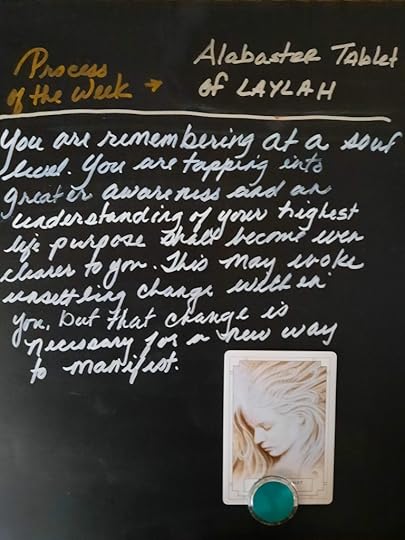 Process
of the Week →
Alabaster Tablet
of LAYLAH
You are remembering at a soul
level. You are tapping into
greater awareness and an
understanding of your highest
life purpose shall become even
clearer to you. This may evoke
unsettling change within
you, but that change is
necessary for a new way
to manifest.